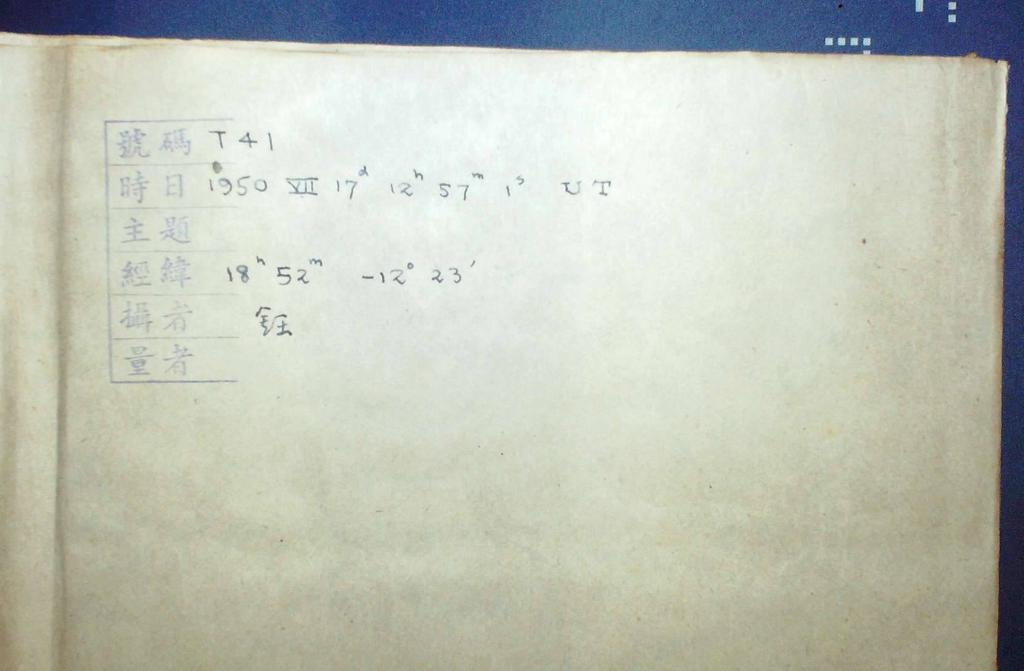 號碼 T 41
時日 1950 VII 17ᵈ 12ʰ 57ᵐ 1ˢ UT
主題
經緯 18ʰ 52ᵐ -12° 23′
攝者 鈺
量者